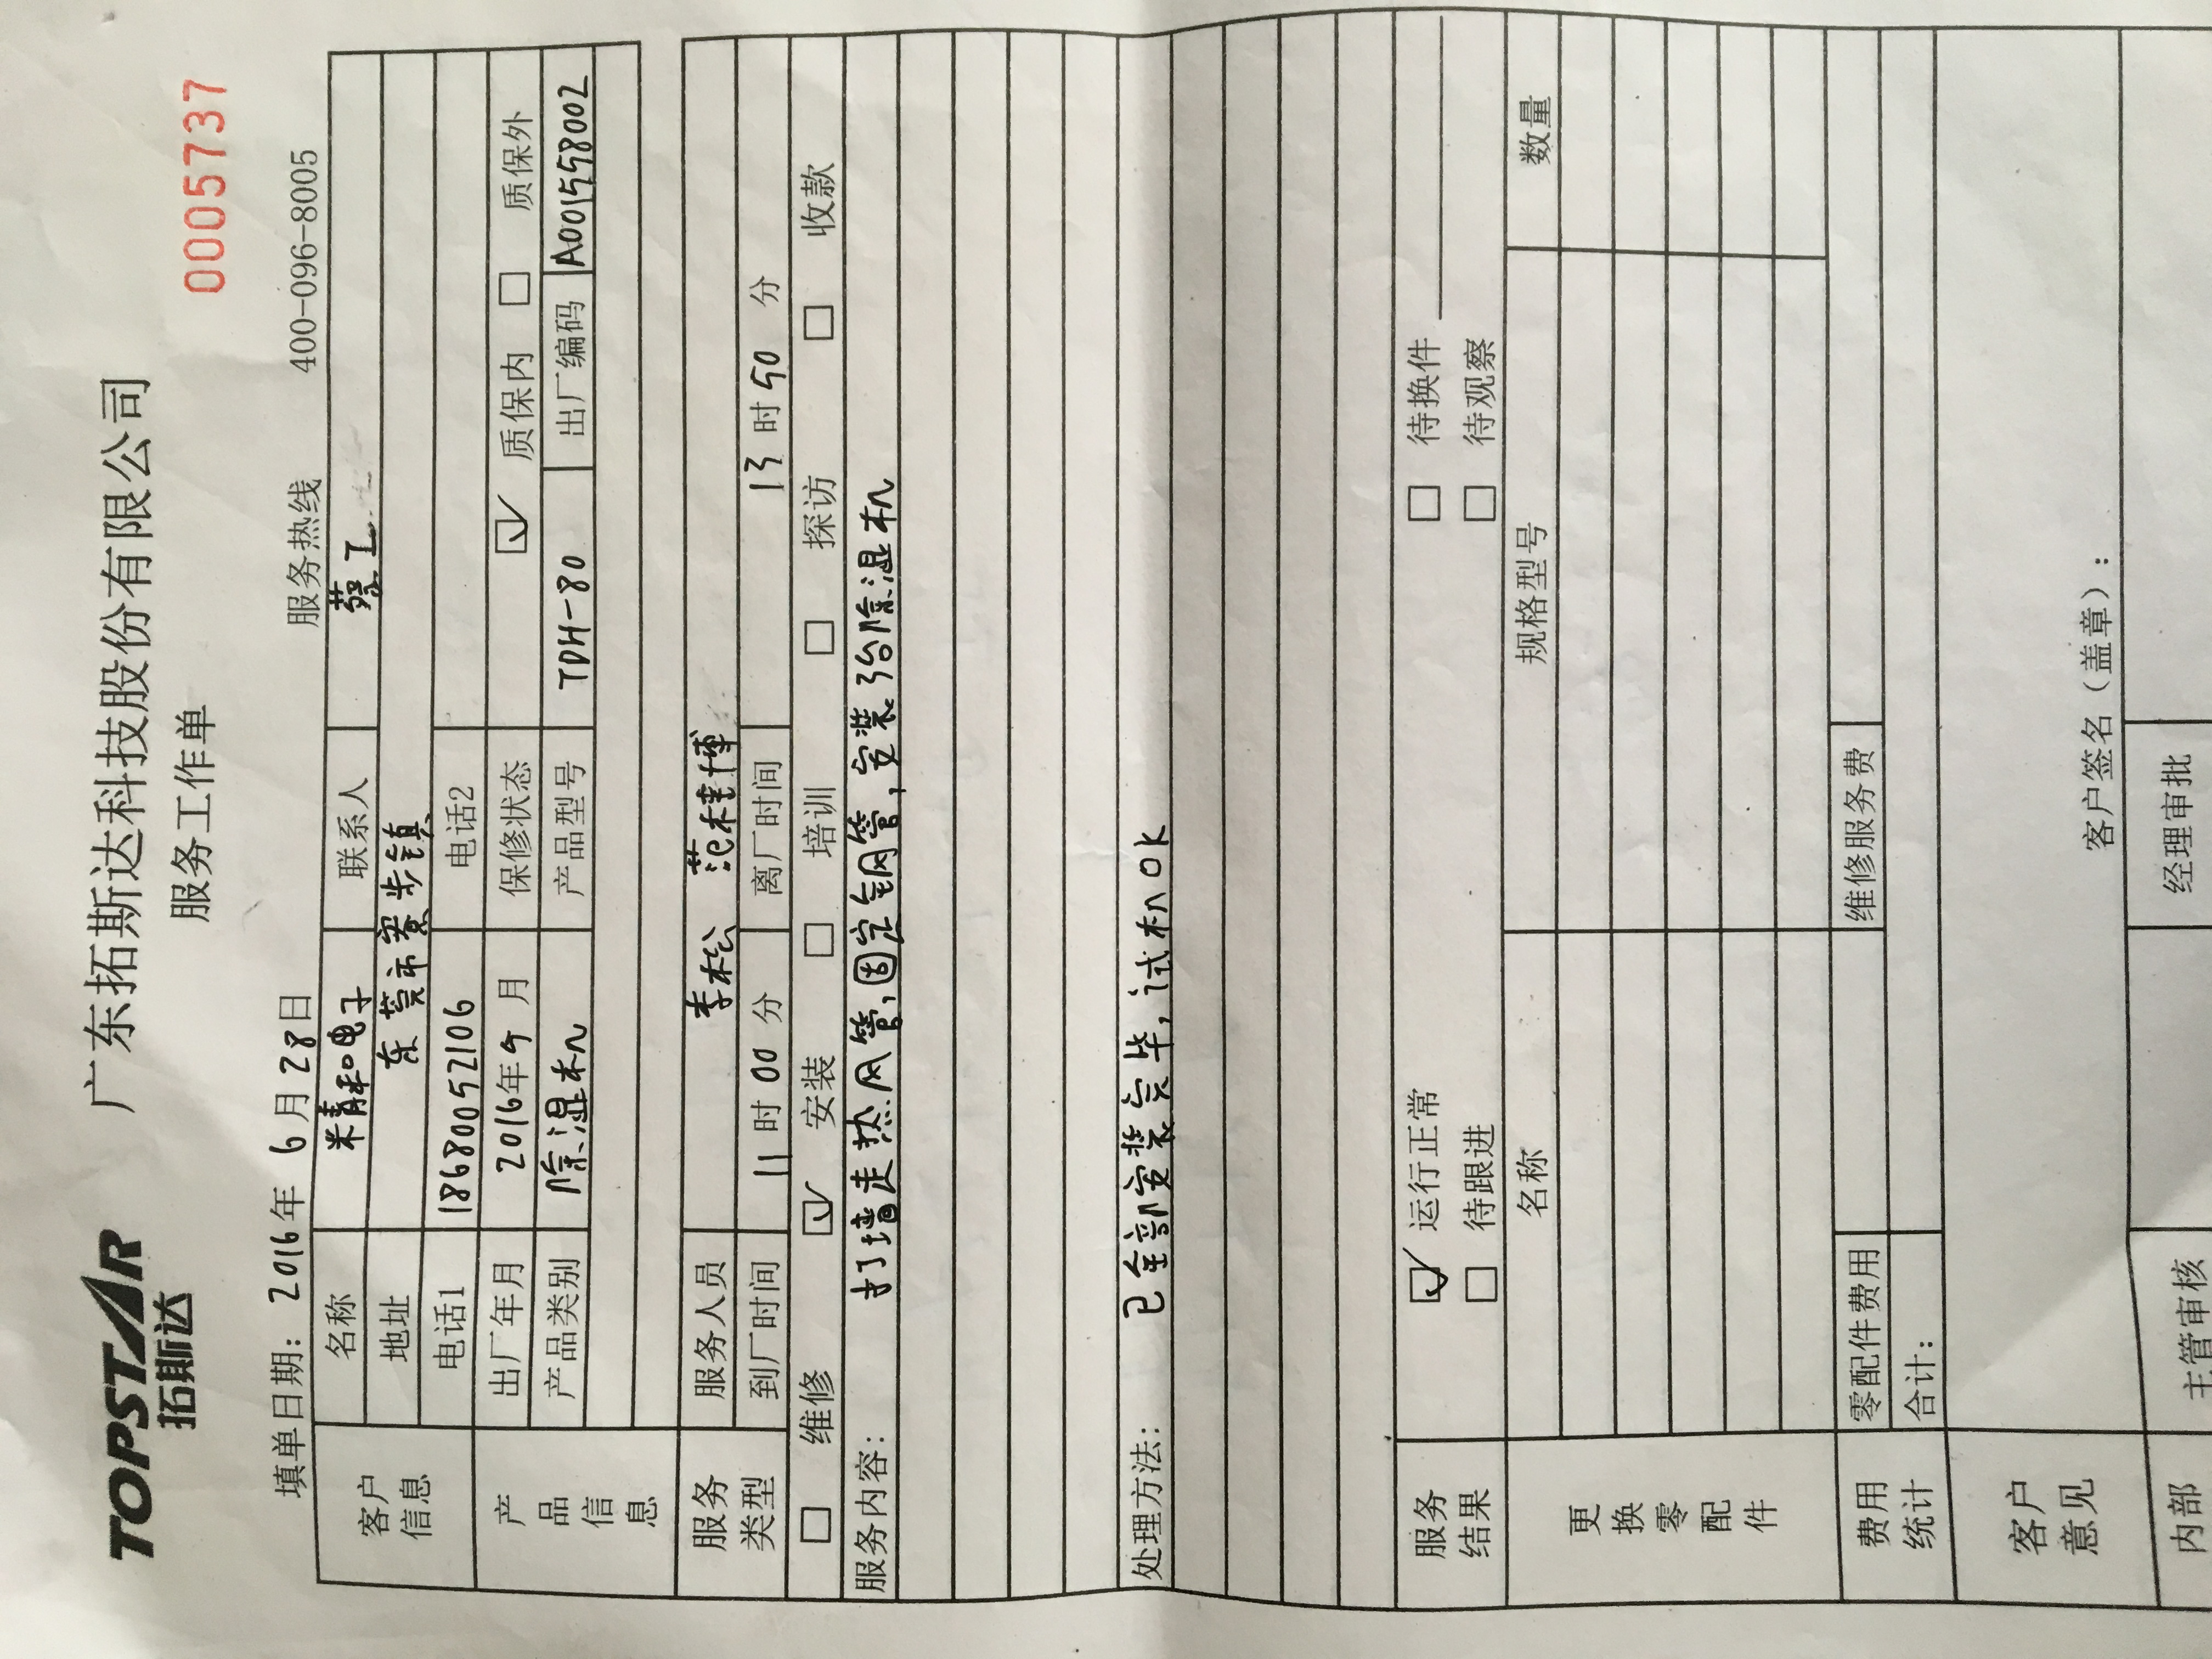 TOPSTAR
拓斯达
广东拓斯达科技股份有限公司
服务工作单
000573​7
填单日期: 2016年 6月28日 服务热线 400-096-8005
客户信息 名称 精和电子 联系人 蔡工
地址 东莞市寮步镇
电话1 18680052106 电话2
产品信息 出厂年月 2016年5月 保修状态 质保内 质保外
产品类别 除湿机 产品型号 TDH-80 出厂编码 A001558002
服务类型 服务人员 李松 范博
到厂时间 11时00分 离厂时间 13时50分
维修 安装 培训 探访 收款
服务内容: 打墙走热风管,固定钢管,安装3台除湿机
处理方法: 已全部安装完毕,试机OK
服务结果 运行正常 待换件
待跟进 待观察
更换零配件 名称 规格型号 数量
费用统计 零配件费用 维修服务费
合计:
客户意见
客户签名(盖章):
内部 主管审核 经理审批